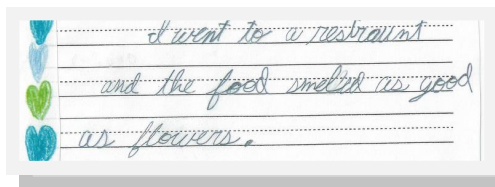 I went to a restraunt
and the food smelled as good
as flowers.